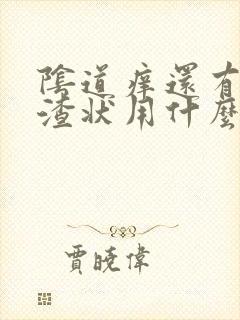 陰道痒還有
渣狀用什麼
賈曉偉